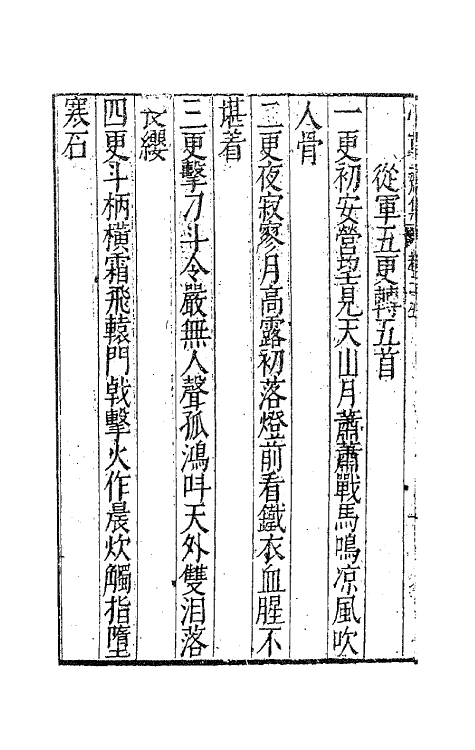 從軍五更轉五首
一更初安營望見天山月蕭蕭戰馬鳴凉風吹
人骨
二更夜寂寥月高露初落燈前看鐵衣血腥不
堪着
三更擊刀斗令嚴無人聲孤鴻呌天外雙泪落
長纓
四更斗柄橫霜飛轅門戟擊火作晨炊觸指墮
寒石